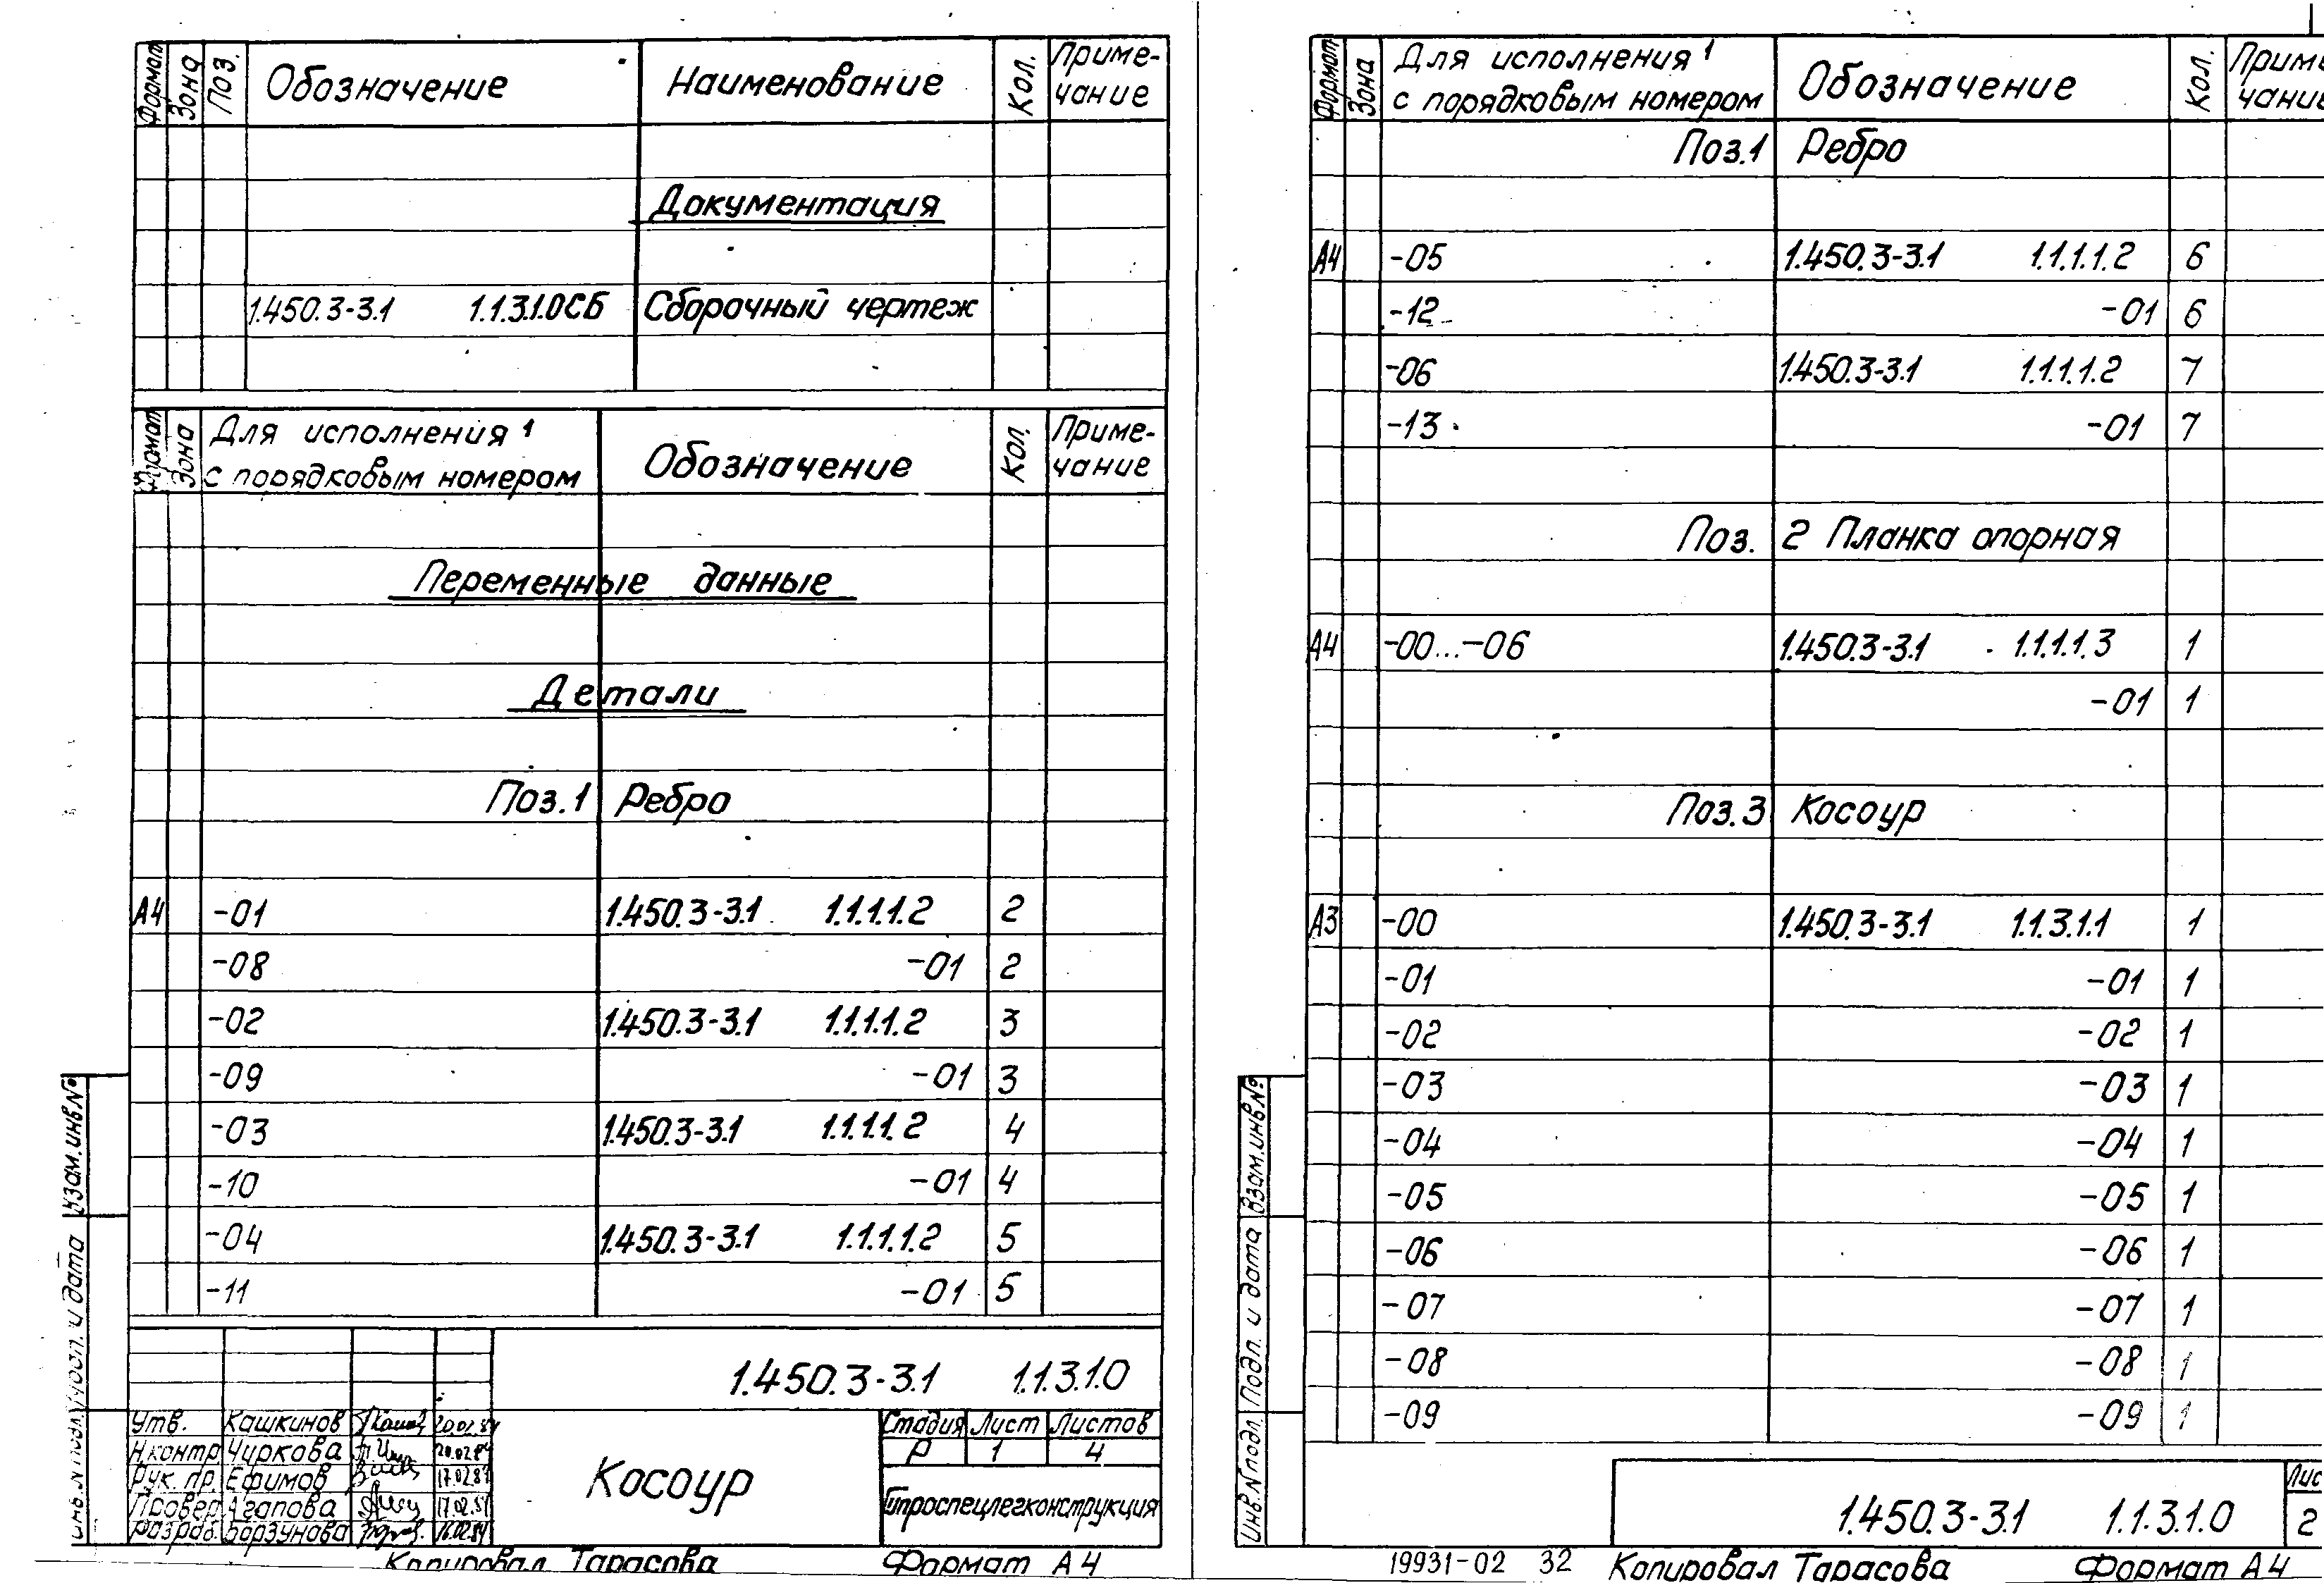 Формат Зона Поз. Обозначение Наименование Кол. Приме-
чание
Документация
1.450.3-3.1 1.1.3.1.0СБ Сборочный чертеж
Формат Зона Для исполнения 1 Обозначение Кол. Приме-
с порядковым номером чание
Переменные данные
Детали
Поз.1 Ребро
А4 -01 1.450.3-3.1 1.1.1.1.2 2
-08 -01 2
-02 1.450.3-3.1 1.1.1.1.2 3
-09 -01 3
-03 1.450.3-3.1 1.1.1.1.2 4
-10 -01 4
-04 1.450.3-3.1 1.1.1.1.2 5
-11 -01 5
1.450.3-3.1 1.1.3.1.0
Утв. Кашкинов 20.02.84
Н.контр Чуркова 20.02.84
Рук. пр. Ефимов 17.02.84
Провер. Агапова 17.02.84
Разраб. Борзунова 16.02.84
Косоур
Стадия Лист Листов
Р 1 4
Гипроспецлегконструкция
Копировал Тарасова Формат А4
Инв.№подл. Подп. и дата Взам.инв№
Формат Зона Для исполнения 1 Обозначение Кол. Приме-
с порядковым номером чание
Поз.1 Ребро
А4 -05 1.450.3-3.1 1.1.1.1.2 6
-12 -01 6
-06 1.450.3-3.1 1.1.1.1.2 7
-13 -01 7
Поз. 2 Планка опорная
А4 -00...-06 1.450.3-3.1 1.1.1.1.3 1
-01 1
Поз.3 Косоур
А3 -00 1.450.3-3.1 1.1.3.1.1 1
-01 -01 1
-02 -02 1
-03 -03 1
-04 -04 1
-05 -05 1
-06 -06 1
-07 -07 1
-08 -08 1
-09 -09 1
Инв.№подл. Подп. и дата Взам.инв№
1.450.3-3.1 1.1.3.1.0
Лис
2
19931-02 32 Копировал Тарасова Формат А4